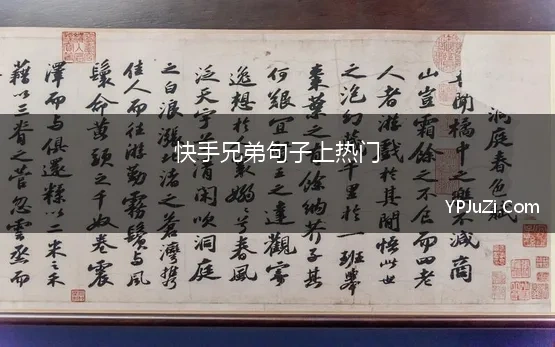 洞庭春色賦
吾聞橘中之樂不減商
山豈霜餘之不食而四老
人者游戲於其間悟此世
之泡幻藏千里於一班舉
棗葉之有餘納芥子其
何艱宜賢王之達觀寄
逸想於人寰嫋嫋兮春風
泛天宇兮清閑吹洞庭
之白浪漲北渚之蒼灣攜
佳人而往游勤霧鬢與風
鬟命黄頭之千奴卷震
澤而與俱還糅以二米之禾
藉以三脊之菅忽雲烝而
快手兄弟句子上热门
YPJuZi.Com